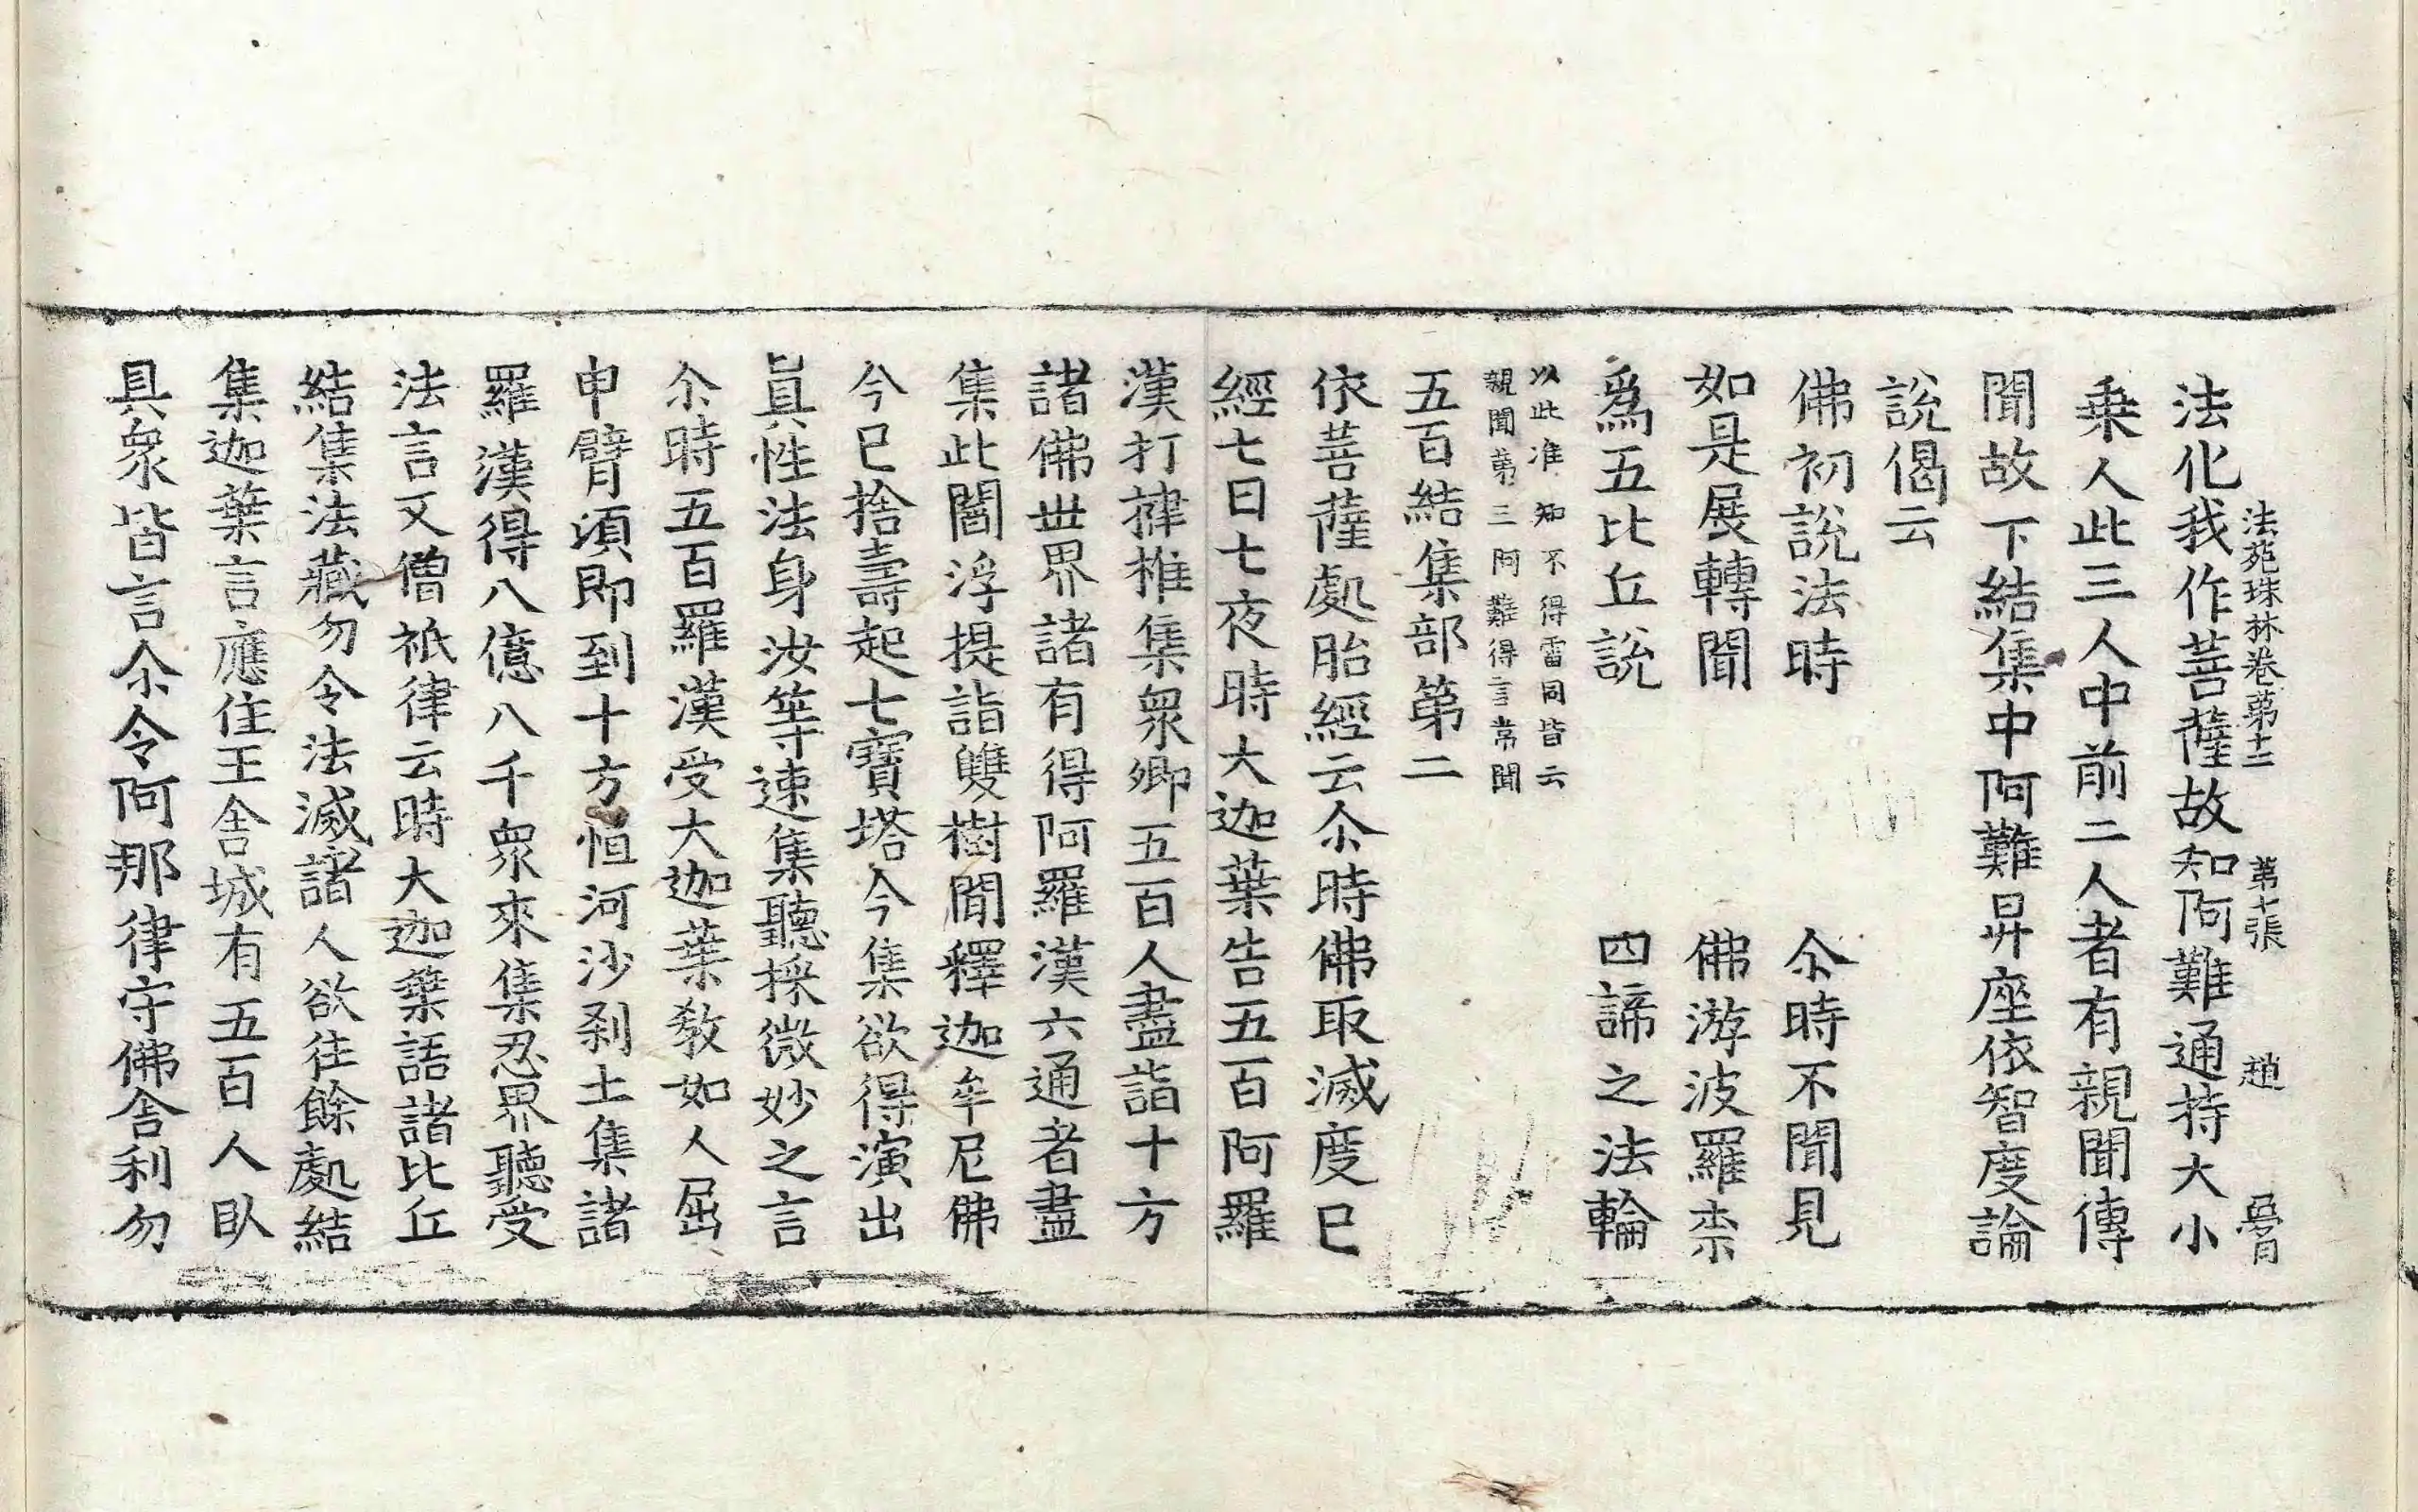 法苑珠林卷第十二 第七張 趙 㬱
法化我作菩薩故知阿難通持大小
乗人此三人中前二人者有親聞傳
聞故下結集中阿難昇座依智度論
說偈云
佛初說法時 尒時不聞見
如是展轉聞 佛游波羅柰
爲五比丘說 四諦之法輪
以此准知不得雷同皆云
親聞第三阿難得言常聞
五百結集部第二
依菩薩處胎經云尒時佛取滅度巳
經七日七夜時大迦葉告五百阿羅
漢打揵椎集衆卿五百人盡詣十方
諸佛世界諸有得阿羅漢六通者盡
集此閻浮提詣雙樹閒釋迦牟尼佛
今巳捨壽起七寶塔今集欲得演出
眞性法身汝等速集聽採微妙之言
尒時五百羅漢受大迦葉教如人屈
申臂頃即到十方恒河沙刹土集諸
羅漢得八億八千衆來集忍界聽受
法言又僧祇律云時大迦葉語諸比丘
結集法藏勿令法滅諸人欲往餘處結
集迦葉言應住王舍城有五百人臥
具衆皆言尒令阿那律守佛舍利勿